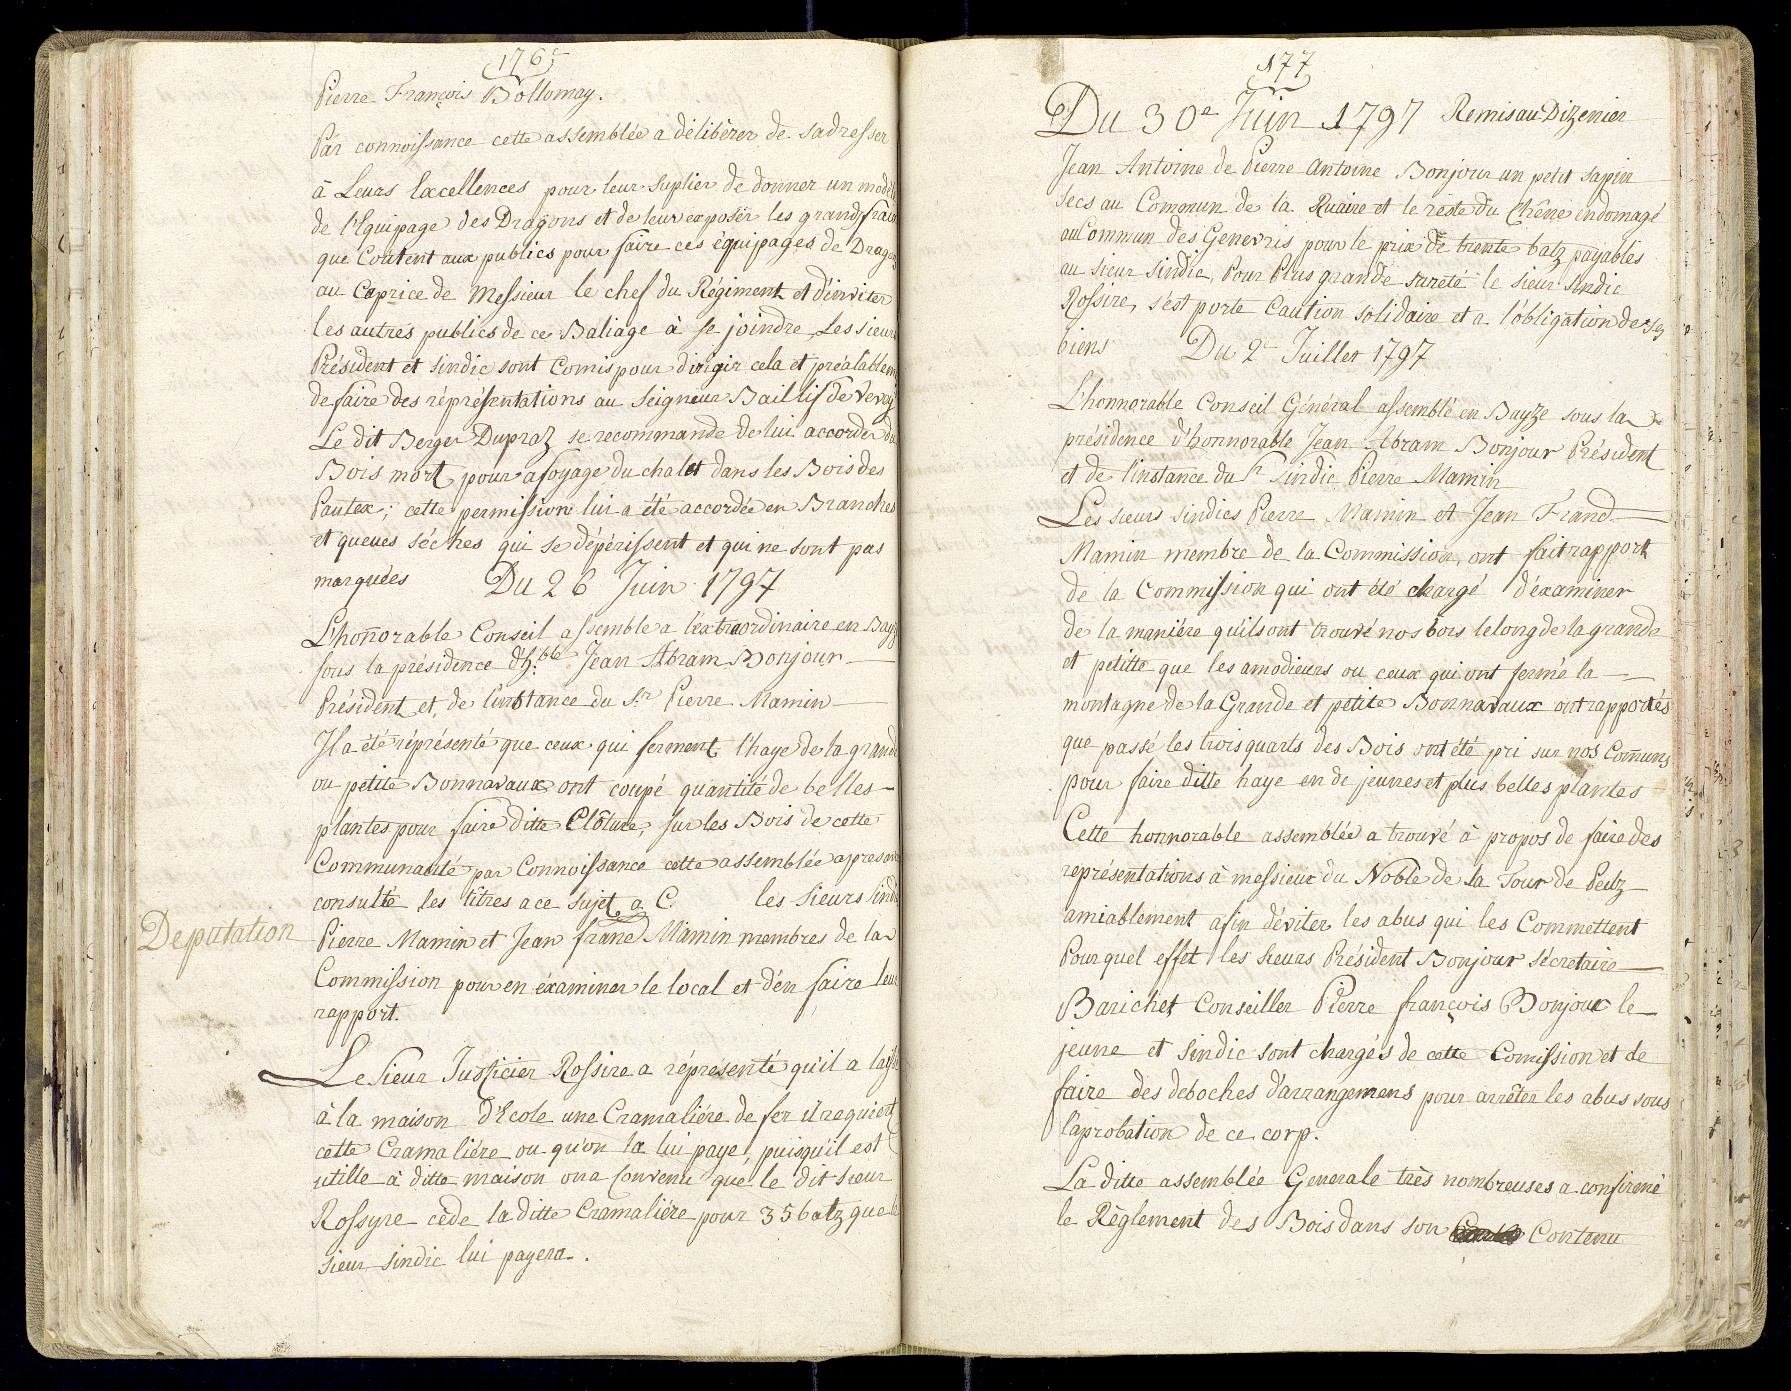 176
Pierre François Bollomay.
Par connoissance cette assemblée a délibérer de sadresser
à Leurs Excellences pour leur suplier de donner un modèle
de l'Equipage des Dragons et de leur exposer les grands frais
que Coutent aux publics pour faire ces équipages de Dragons
au Caprice de Messieur le chef du Régiment et d'inviter
les autres publics de ce Baliage à se joindre, Les sieurs
Président et sindic sont Comis pour dirigir cela et préalablem
de faire des réprésentations au Seigneur Baillif de Vevey
Le dit Berger Dupraz se recommande de lui accorder du
Bois mort pour afoyage du chalet dans les Bois des
Pautex; cette permission lui a été accordée en Branches
et queues séches qui se dépérissent et qui ne sont pas
marquées Du 26 Juin 1797
L'honnorable Conseil assemble a l'extraordinaire en Bayze
sous la présidence d'h.ble Jean Abram Bonjour
Président et de l'instance du S.r Pierre Mamin
Il a été réprésenté que ceux qui ferment l'haye de la grande
ou petite Bonnavaux ont coupé quantité de belles
plantes pour faire ditte Clôture, sur les Bois de cette
Communauté par Connoissance cette assemblée apres avoir
consulté les titres a ce Sujet a C les Sieurs Sindic
Deputation
Pierre Mamin et Jean franç Mamin membres de la
Commission pour en éxaminer le local et d'én faire leur
rapport.
Le Sieur Justicier Rossire a réprésenté qu'il a laissé
à la maison d'Ecole une Cramaliére de fer il requiert
cette Cramaliére ou qu'on la lui paye, puisqu'il est
utille à ditte maison on a Convenu que le dit sieur
Rossyre cède la ditte Cramalière pour 35 batz que le
sieur sindic lui payera.
177
Du 30e Juin 1797 Remis au Dizenier
Jean Antoine de Pierre Antoine Bonjour un petit sapin
secs au Commun de la Ruaire et le reste du Chêne endomagé
au Commun des Genevris pour le prix de trente batz payables
au sieur sindic, Pour Plus grande sureté le sieur sindic
Rossire, s'est porte Caution solidaire et a l'obligation de ses
biens Du 2e Juillet 1797
L'honnorable Conseil Général assemblé en Bayze sous la
présidence d'honnorable Jean Abram Bonjour Président
et de l'instance du Sr Sindic Pierre Mamin
Les sieurs sindics Pierre Mamin et Jean Franç
Mamin membre de la Commission, ont fait rapport
de la Commission qui ont été chargé d'éxaminer
de la maniére qu'ils ont trouvé nos bois le long de la grande
et petitte que les amodieurs ou ceux qui ont fermé la
montagne de la Grande et petite Bonnavaux ont rapportés
que passé les trois quarts des Bois ont été pri sur nos Comuns
pour faire ditte haye en de jeunes et plus belles plantes
Cette honnorable assemblée a trouvé à propos de faire des
représentations à messieur du Noble de la Tour de Peilz
amiablement afin d'éviter les abus qui les Commettent
Pour quel effet les sieurs Président Bonjour sécretaire
Barichet Conseiller Pierre françois Bonjour le
jeune et sindic sont chargés de cette Comission et de
faire des deboches d'arrangemens pour arrêter les abus sous
l'aprobation de ce corp.
La ditte assemblée Generale très nombreuses a confirmé
le Règlement des Bois dans son Contenu